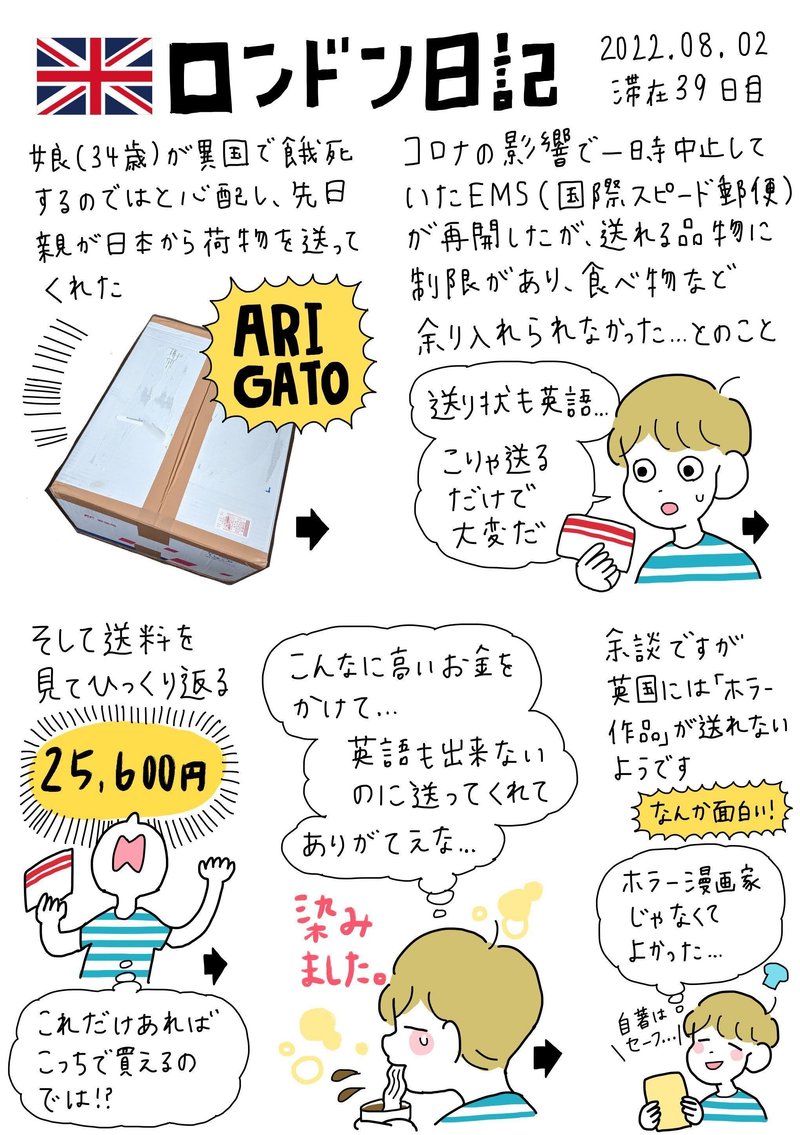 ロンドン日記
2022.08.02
滞在39日目
娘(34歳)が異国で餓死
するのではと心配し、先日
親が日本から荷物を送って
くれた
ARI
GATO
コロナの影響で一時中止して
いたEMS(国際スピード郵便)
が再開したが、送れる品物に
制限があり、食べ物など
余り入れられなかった…とのこと
送り状も英語…
こりゃ送る
だけで
大変だ
そして送料を
見てひっくり返る
25,600円
これだけあれば
こっちで買えるの
では!?
こんなに高いお金を
かけて…
英語も出来ない
のに送ってくれて
ありがてえな…
染み
ました。
余談ですが
英国には「ホラー
作品」が送れない
ようです
なんか面白い!
ホラー漫画家
じゃなくて
よかった…
自著は
セーフ…!